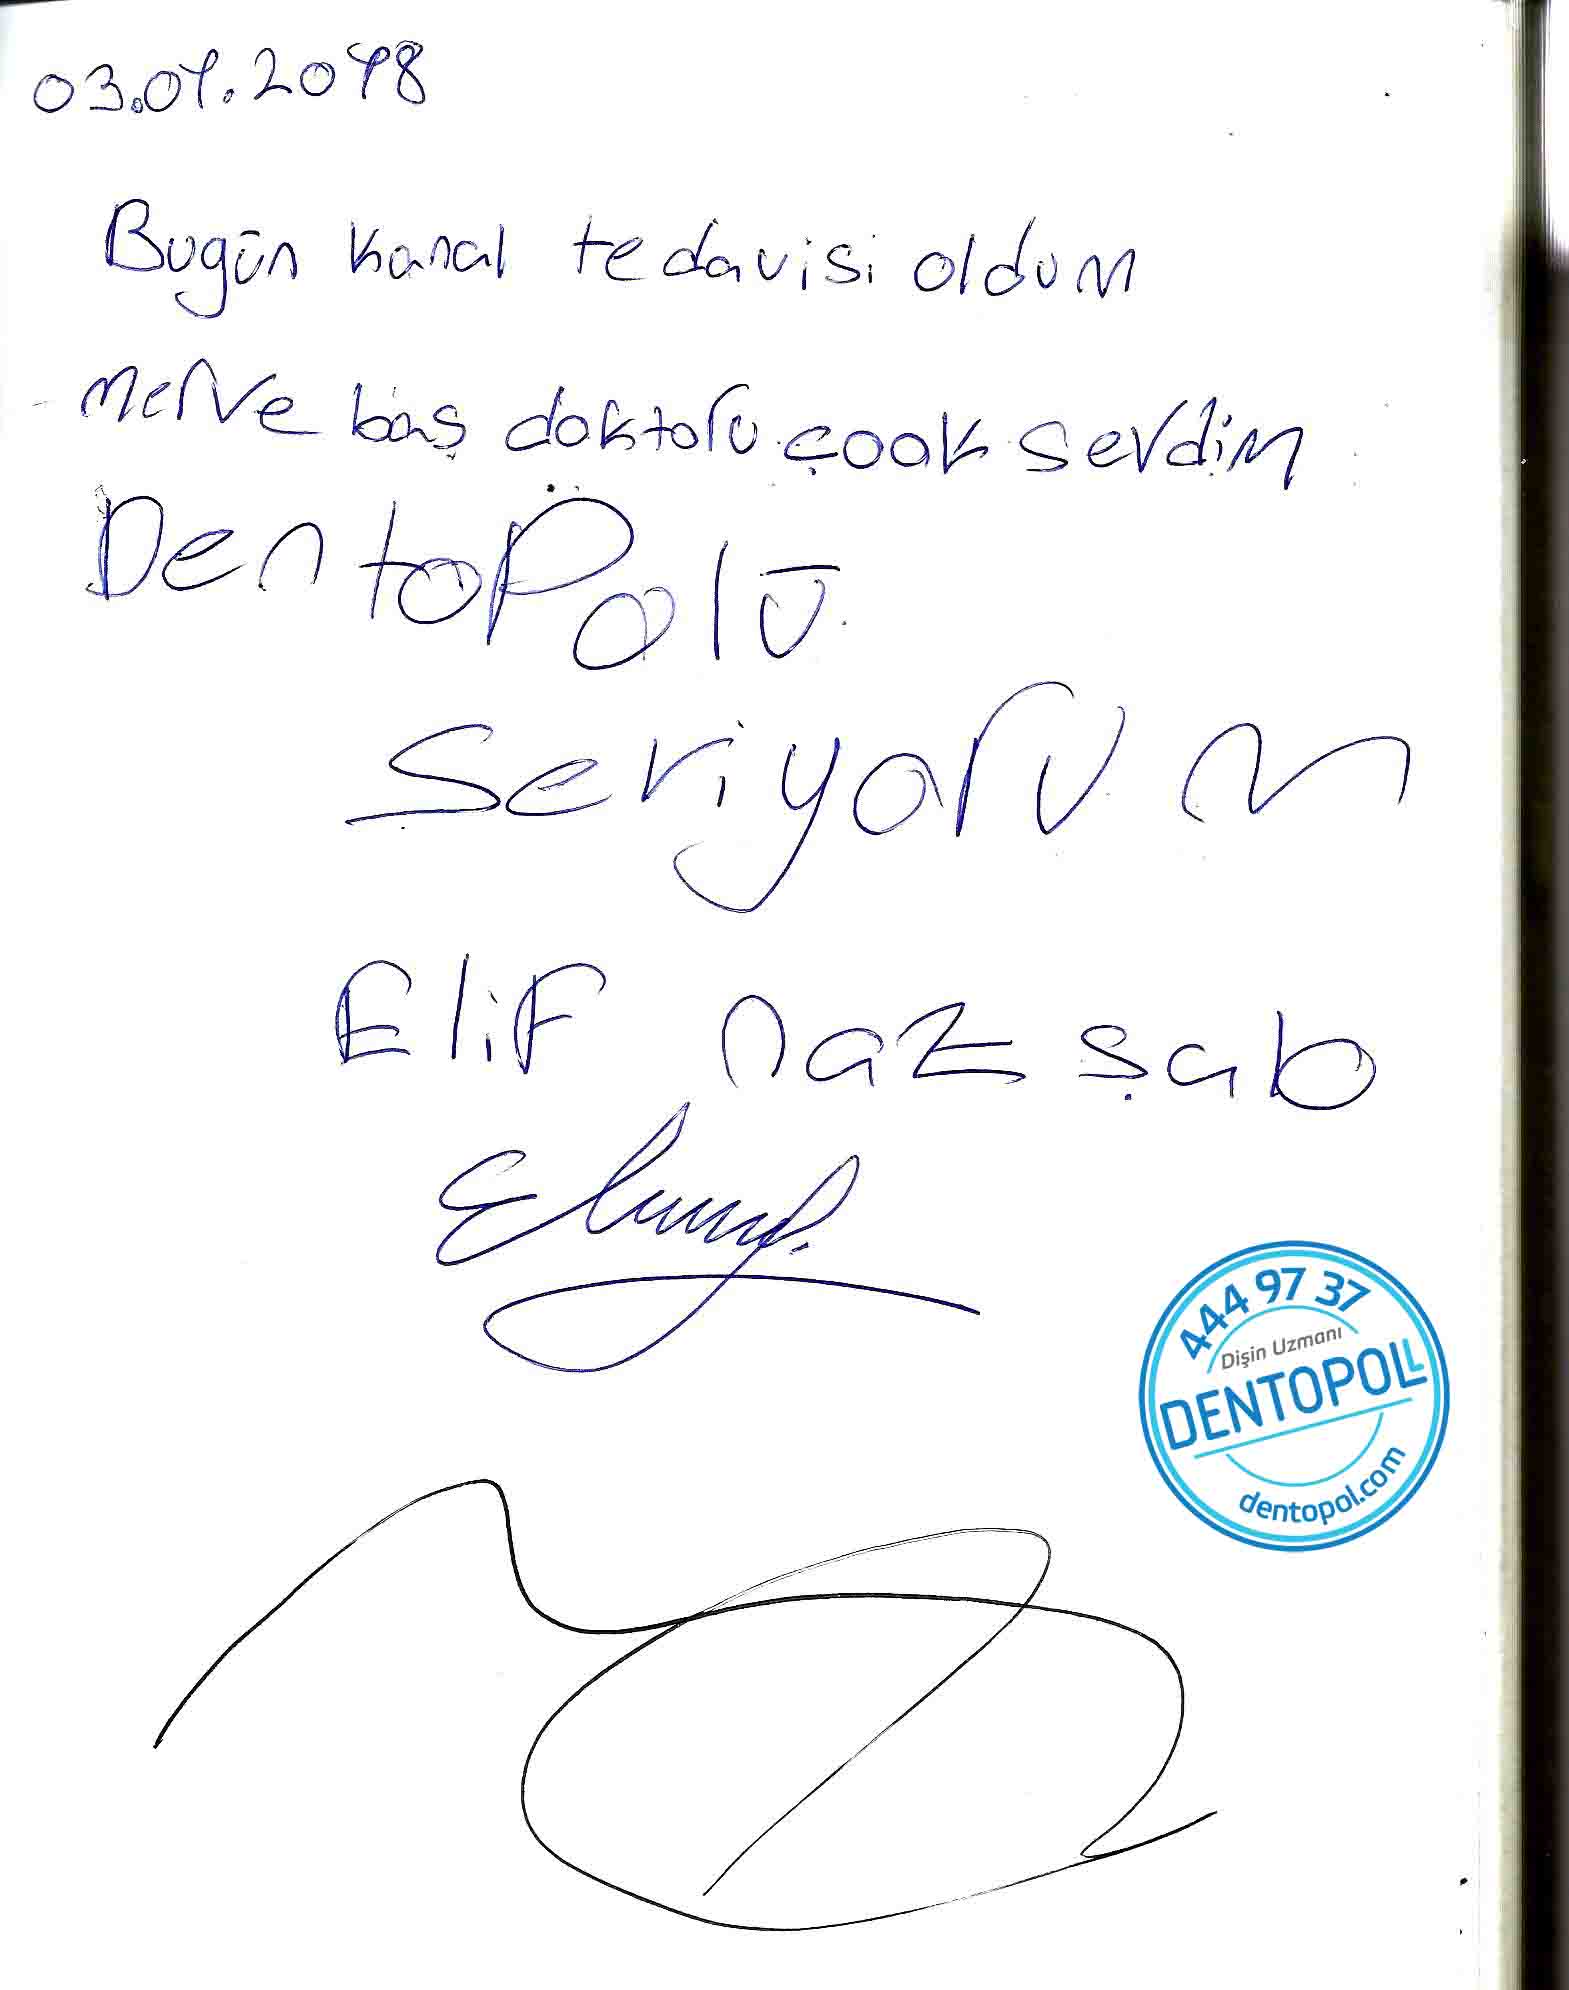 03.01.2018
Bugün kanal tedavisi oldum
merve baş doktoru çook sevdim
DentoPolü
Seviyorum
Elif naz şab
444 97 37
Dişin Uzmanı
DENTOPOL
dentopol.com